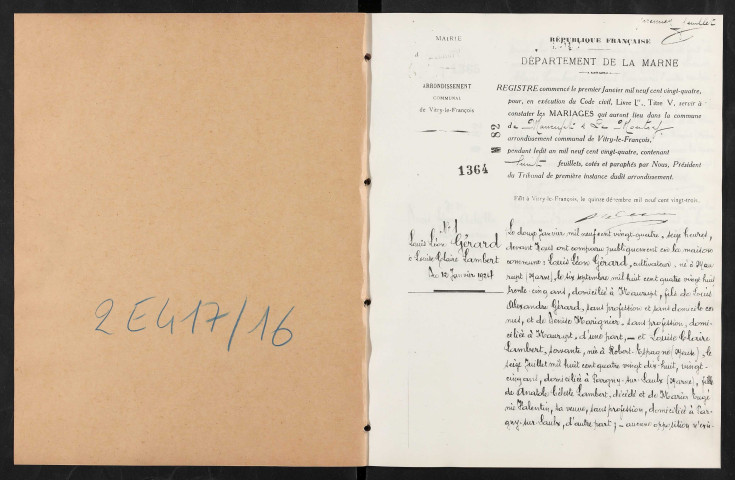 2 E 417/16
premier feuillet
MAIRIE
d
ARRONDISSEMENT
COMMUNAL
de Vitry-le-François
M 82
1364
RÉPUBLIQUE FRANÇAISE
DÉPARTEMENT DE LA MARNE
REGISTRE commencé le premier Janvier mil neuf cent vingt-quatre,
pour, en exécution du Code civil, Livre Ier, Titre V, servir à
constater les MARIAGES qui auront lieu dans la commune
de Maurupt & Le Montois
arrondissement communal de Vitry-le-François,
pendant ledit an mil neuf cent vingt-quatre, contenant
huit feuillets, cotés et paraphés par Nous, Président
du Tribunal de première instance dudit arrondissement.
Fait à Vitry-le-François, le quinze décembre mil neuf cent vingt-trois.
N° 1
Louis Léon Gérard
& Louise Claire Lambert
Le 12 Janvier 1924
Le douze Janvier mil neuf cent vingt-quatre, seize heures,
devant Nous ont comparu publiquement en la maison
commune : Louis Léon Gérard, cultivateur, né à Mau-
rupt (Marne), le six septembre mil huit cent quatre vingt huit
trente-cinq ans, domicilié à Maurupt, fils de Louis
Alexandre Gérard, sans profession et sans domicile con
nus, et de Denise Marignier, sans profession, domi-
ciliée à Maurupt, d'une part, — et Louise Claire
Lambert, servante, née à Robert-Espagne (Meuse), le
seize Juillet mil huit cent quatre vingt dix-huit, vingt-
cinq ans, domiciliée à Pargny-sur-Saulx (Marne), fille
de Anatole Céleste Lambert, décédé et de Maria
née Valentin, sa veuve, sans profession, domiciliée à Par-
gny-sur-Saulx, d'autre part ; — aucune opposition n'exis-